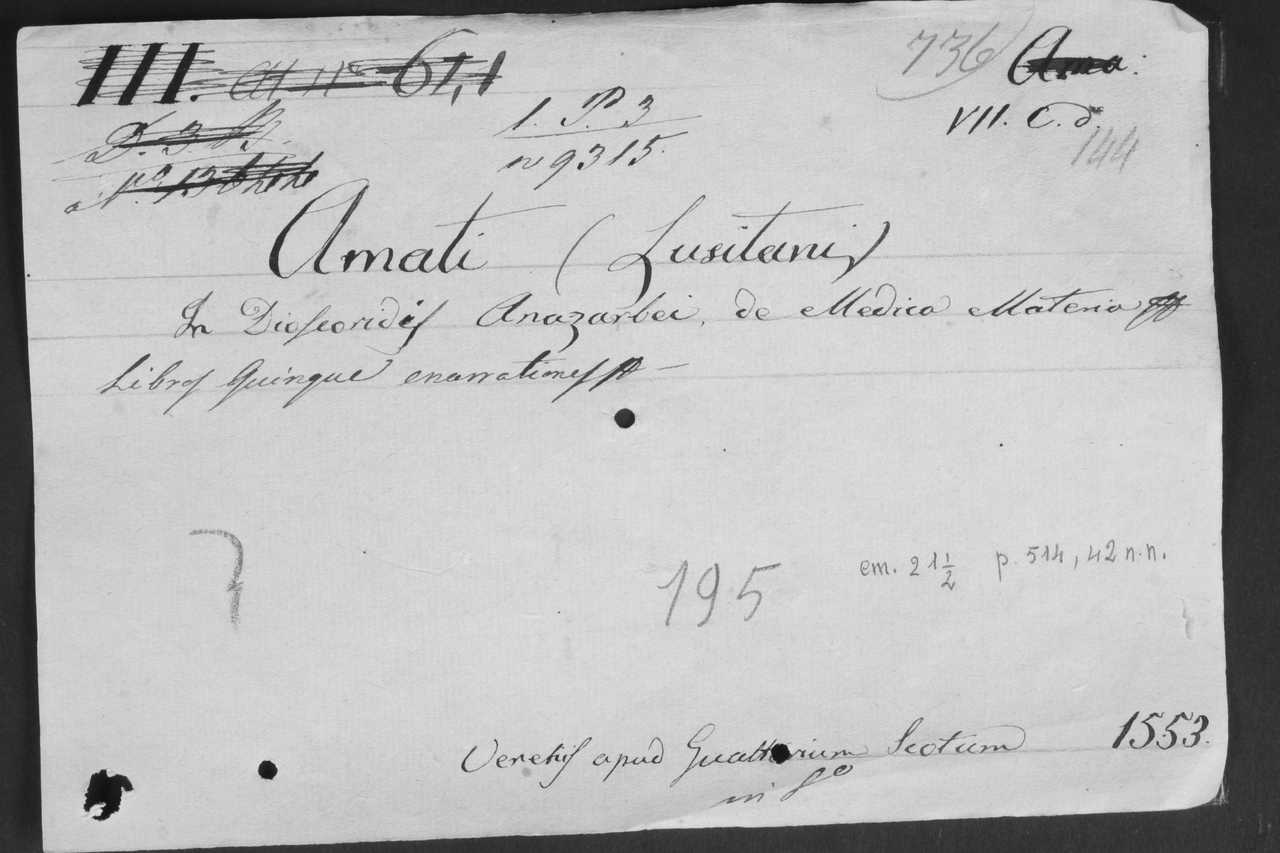 III. 61,1
736 Ama:
VII. C. d.
144
1. P. 3
n 9315.
Amati (Lusitani)
In Dioscoridis Anazarbei, de Medica Materia
Libros Quinque enarrationes
7
195
cm. 21 1/2 p. 514, 42 n.n.
Venetiis apud Gualterium Scotum 1553.
in 8º